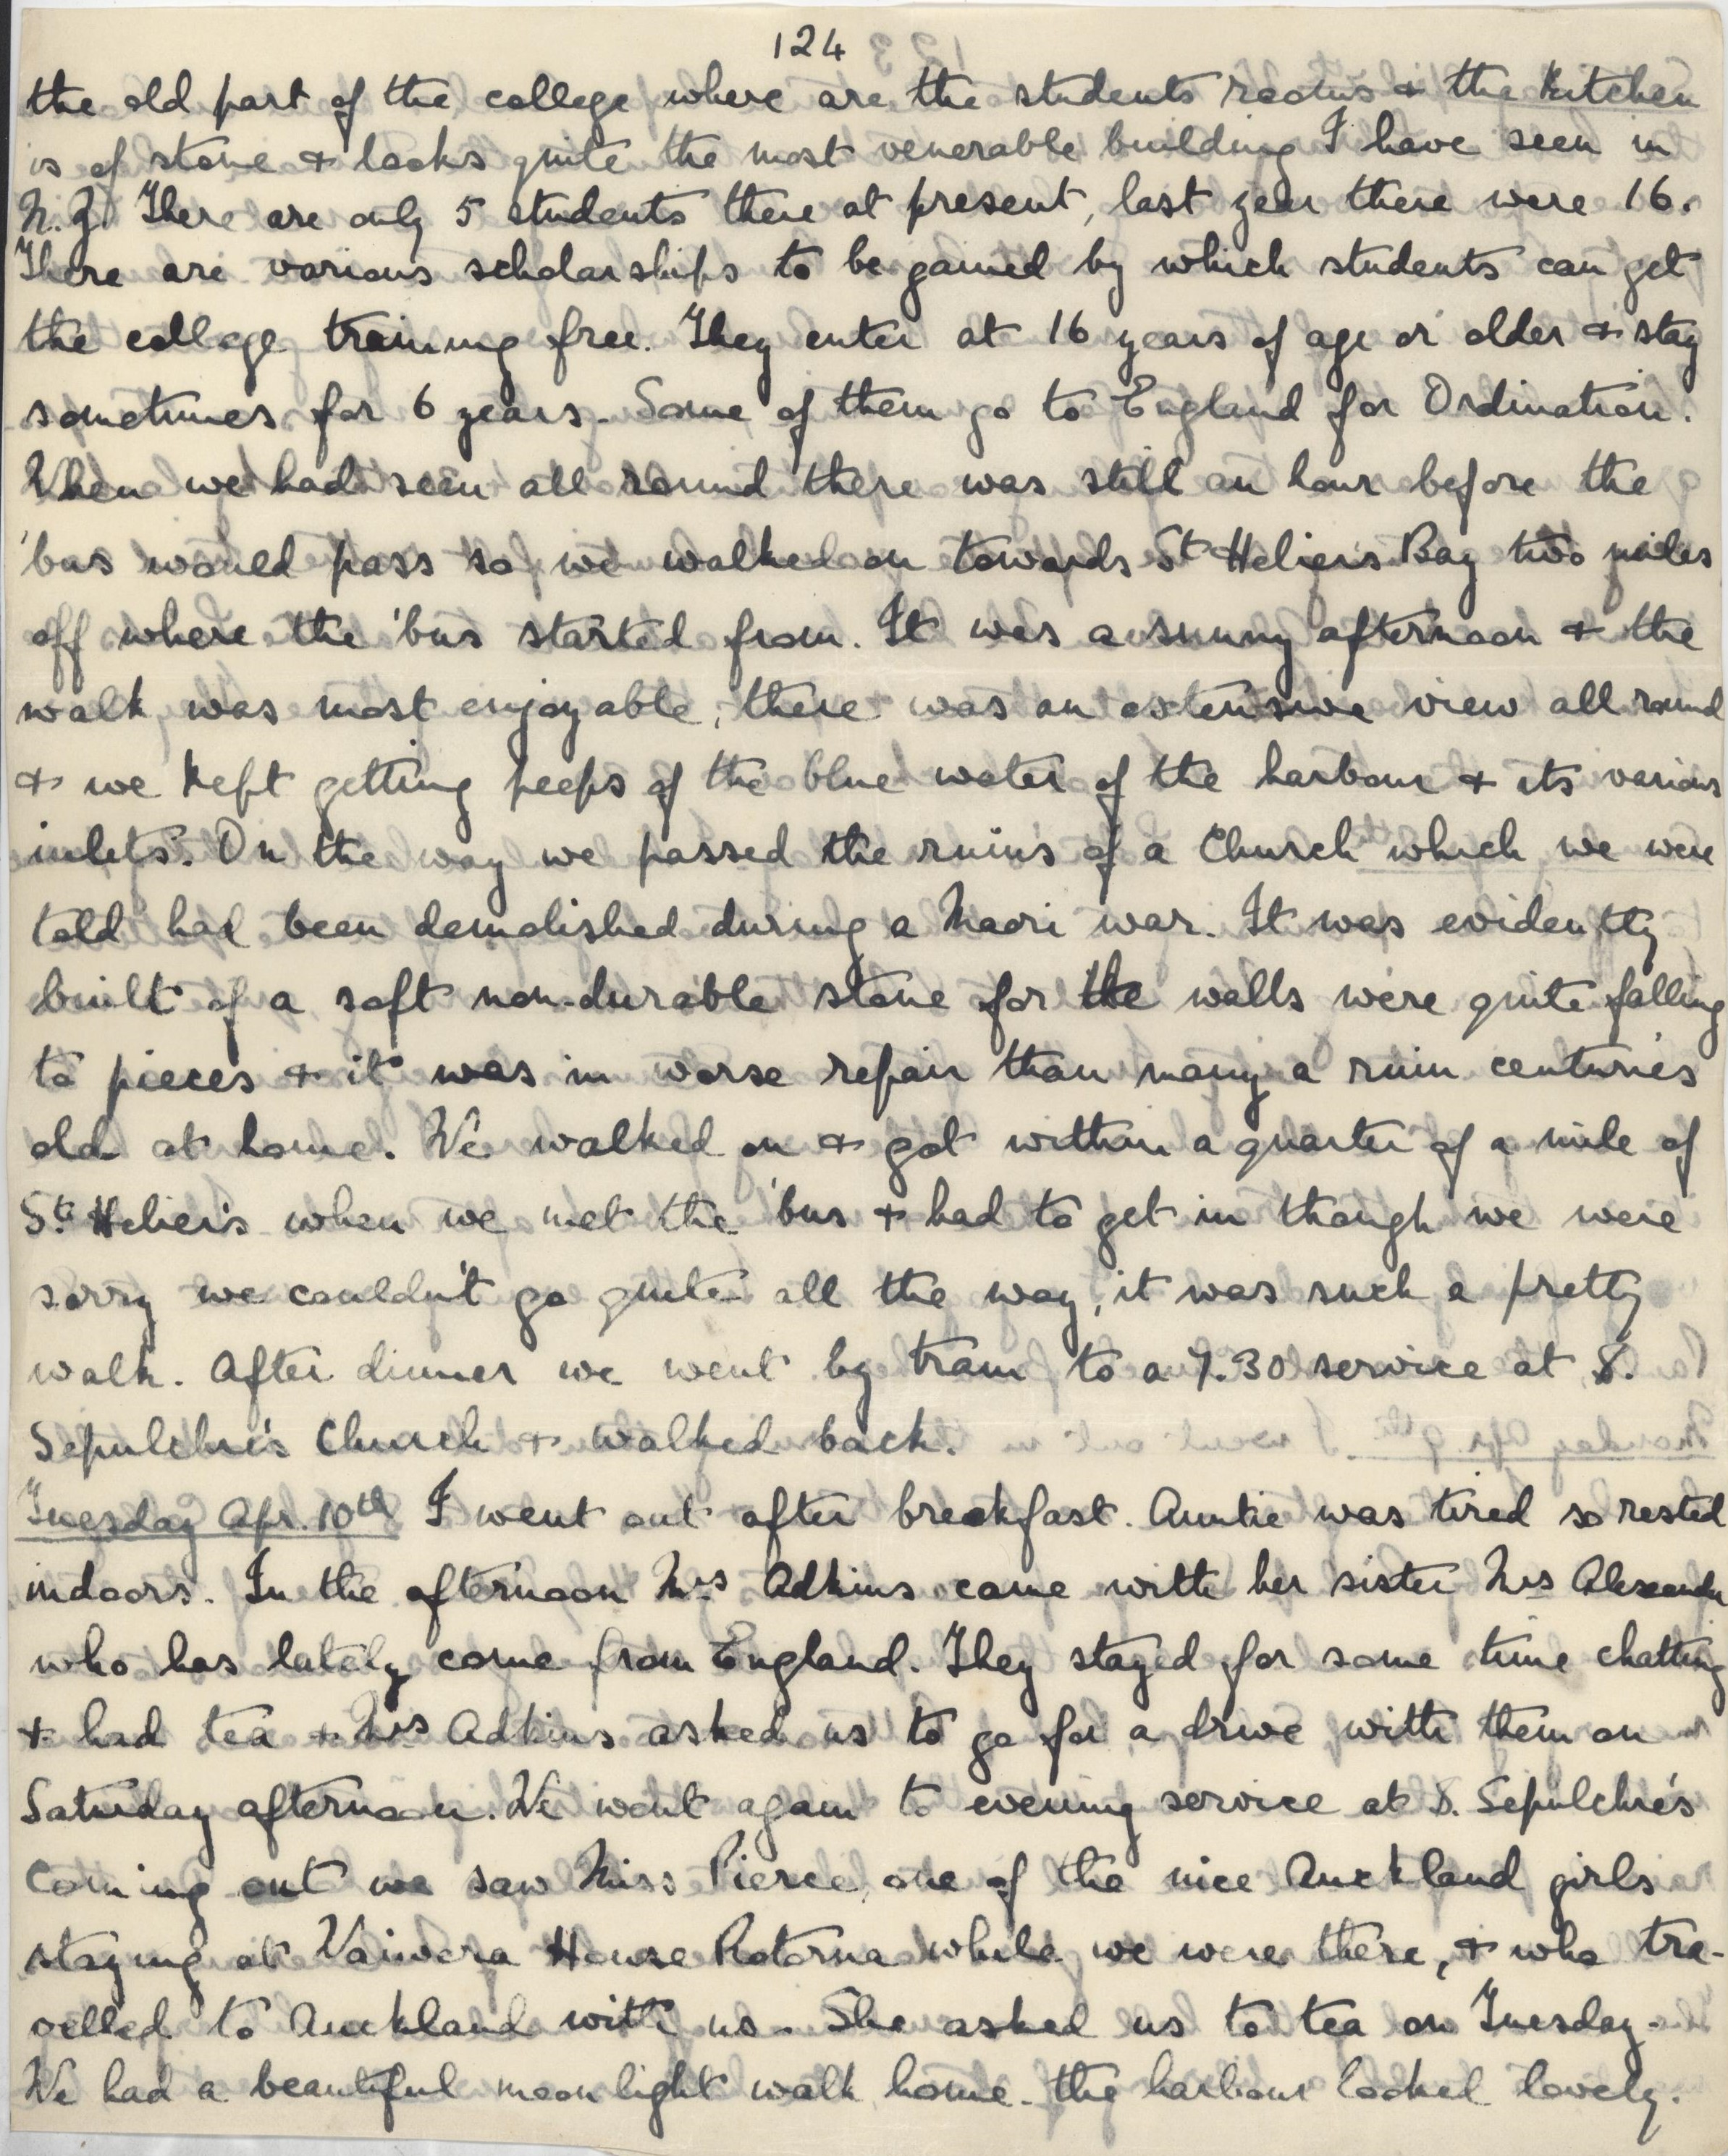 124
the old part of the college where are the students rooms & the kitchen
is of stone & looks quite the most venerable building I have seen in
N.Z. There are only 5 students there at present, last year there were 16.
There are various scholarships to be gained by which students can get
the college training free. They enter at 16 years of age or older & stay
sometimes for 6 years. Some of them go to England for Ordination.
When we had seen all round there was still an hour before the
'bus would pass so we walked on towards St Heliers Bay two miles
off where the 'bus started from. It was a sunny afternoon & the
walk was most enjoyable, there was an extensive view all round
& we kept getting peeps of the blue water of the harbour & its various
inlets. On the way we passed the ruins of a Church which we were
told had been demolished during a Maori war. It was evidently
built of a soft non-durable stone for the walls were quite falling
to pieces & it was in worse repair than many a ruin centuries
old at home. We walked on & got within a quarter of a mile of
St. Helier's when we met the 'bus & had to get in though we were
sorry we couldn't go quite all the way, it was such a pretty
walk. After dinner we went by tram to a 7.30 service at S.
Sepulchre's Church & walked back.
Tuesday Apr. 10th I went out after breakfast. Auntie was tired so rested
indoors. In the afternoon Mrs Adkins came with her sister Mrs Alexander
who has lately come from England. They stayed for some time chatting
& had tea & Mrs Adkins asked us to go for a drive with them on
Saturday afternoon. We went again to evening service at S. Sepulchre's
Coming out we saw Miss Pierce, one of the nice Auckland girls
staying at Waiwera House Rotorua while we were there, & who tra-
velled to Auckland with us. She asked us to tea on Tuesday.
We had a beautiful moonlight walk home. the harbour looked lovely.